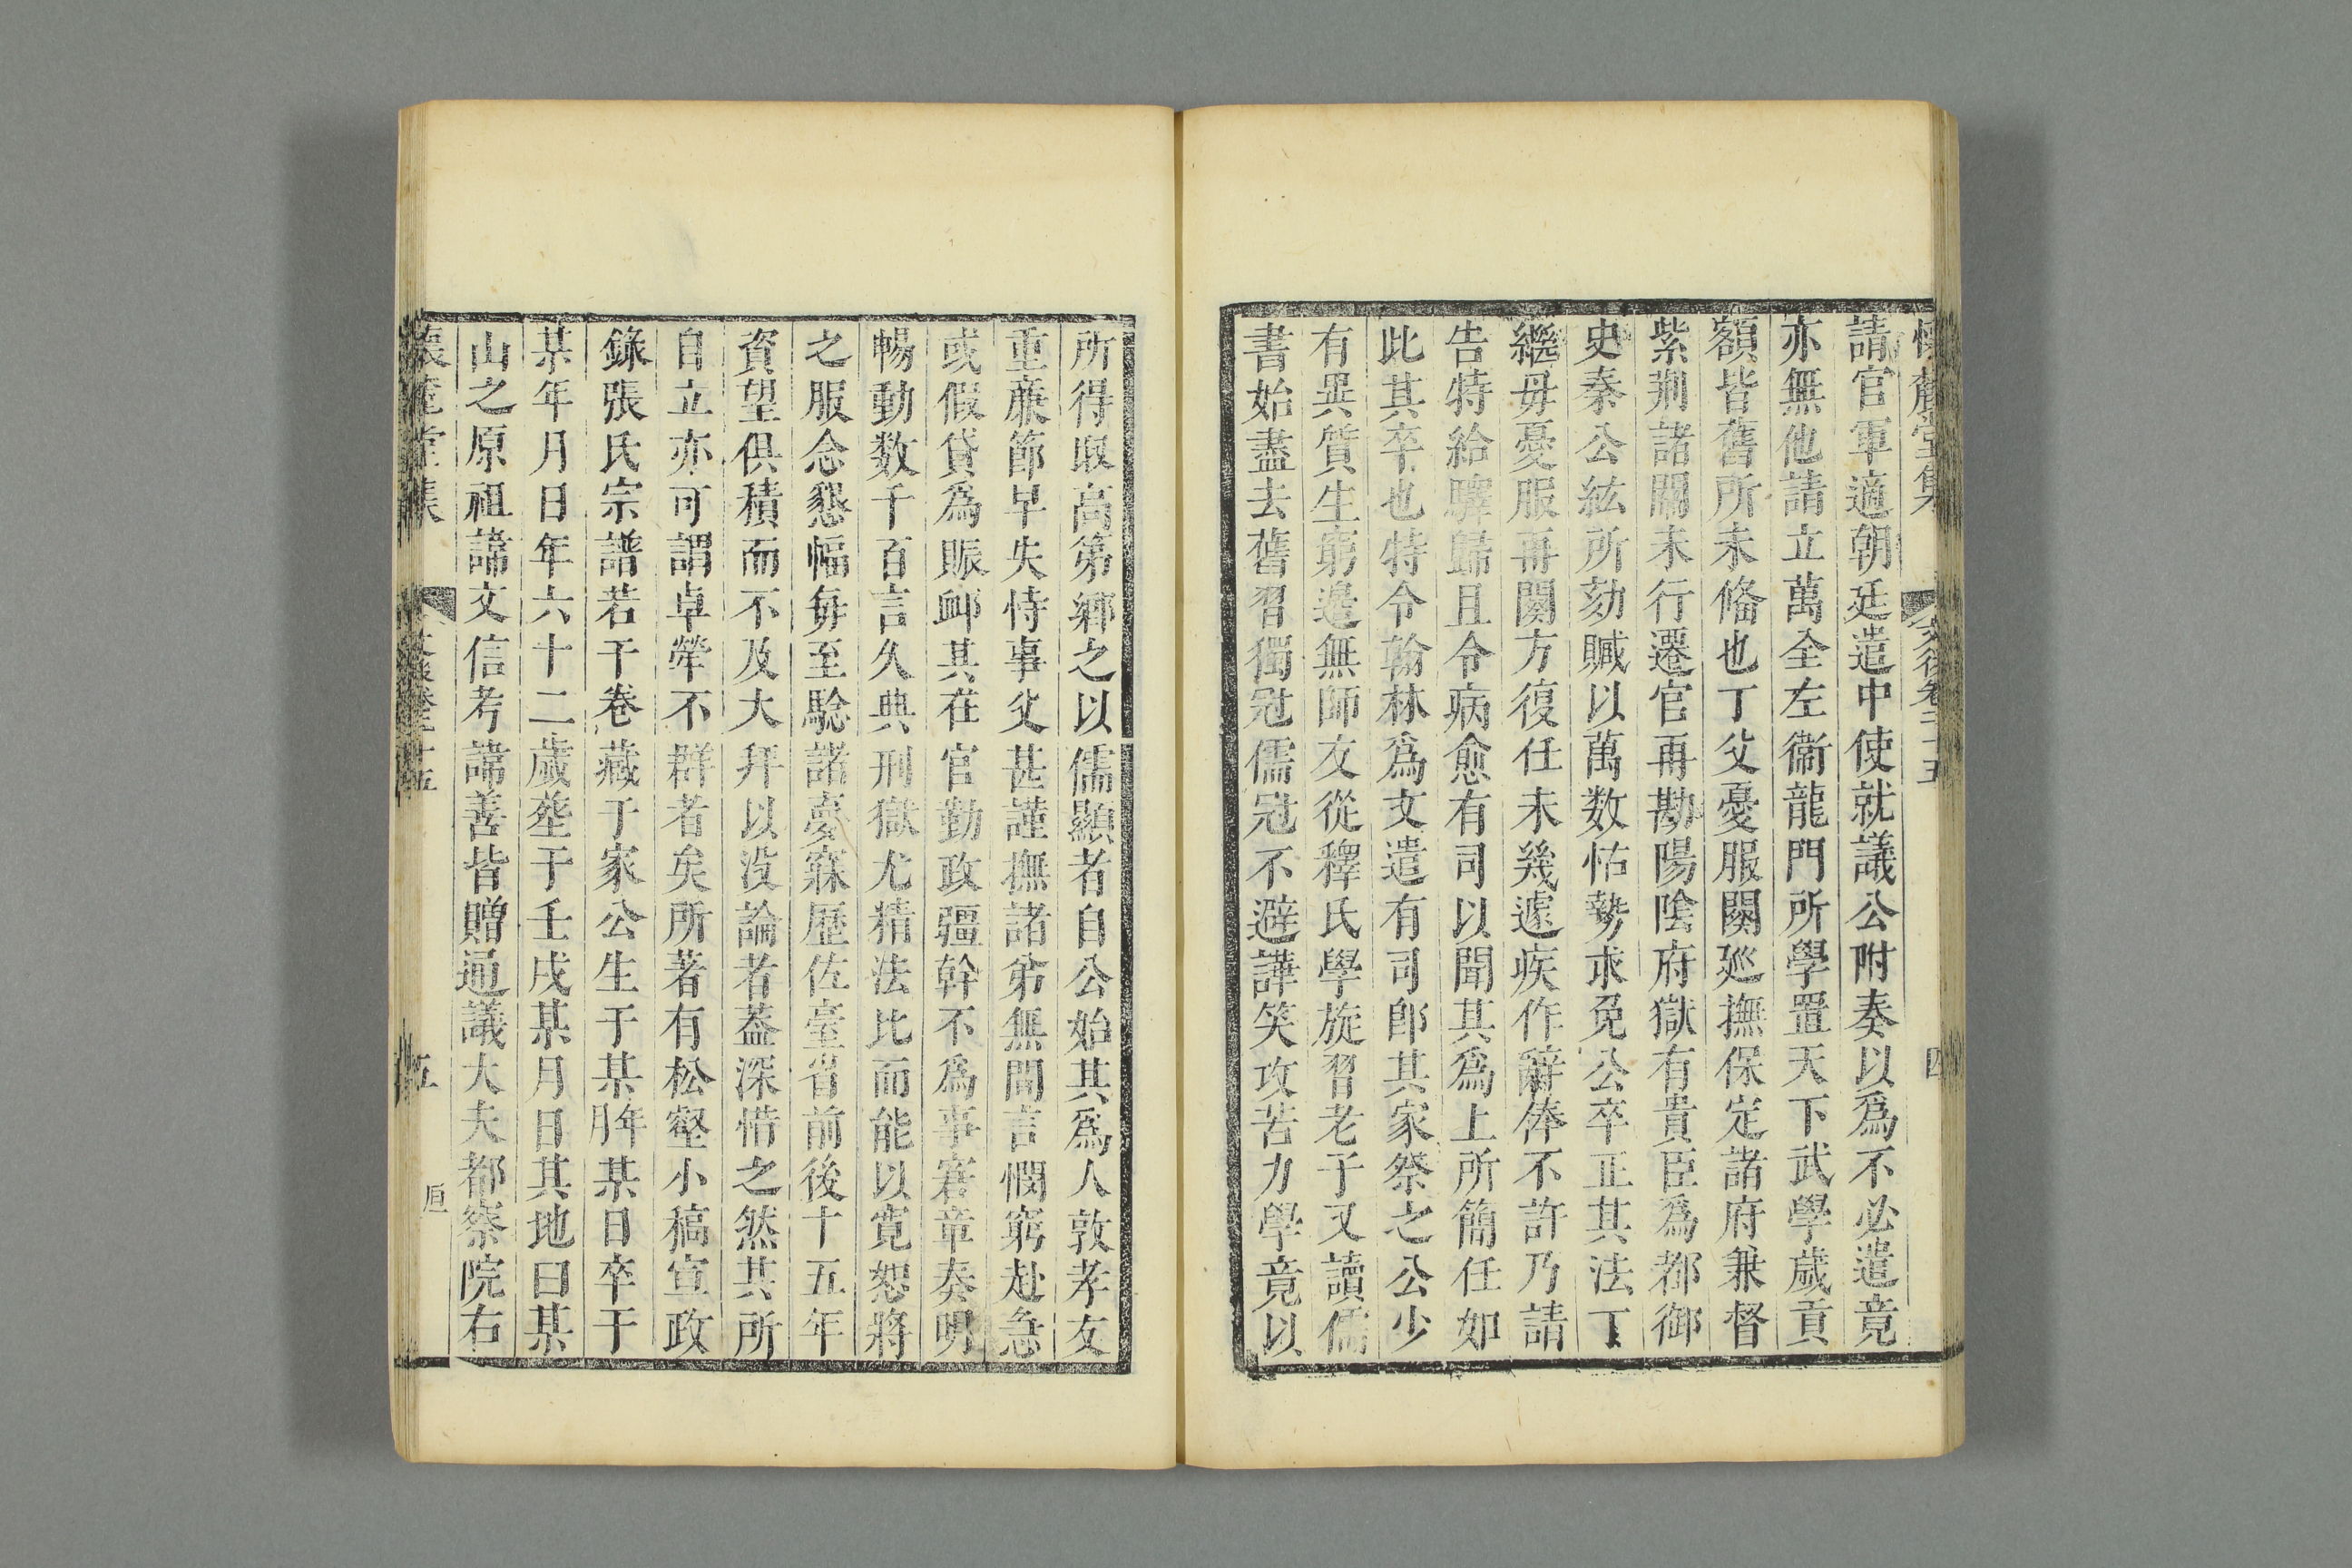 懷麓堂集
文後卷二十五
四
請官軍適朝廷遣中使就議公附奏以爲不必遣竟
亦無他請立萬全左衞龍門所學置天下武學歲貢
額皆舊所未脩也丁父憂服闋廵撫保定諸府兼督
紫荆諸關未行遷官再勘陽隂府獄有貴臣爲都御
史秦公紘所劾贓以萬数怙勢求免公卒正其法丁
繼母憂服再闋方復任未幾遽疾作辭俸不許乃請
告特給驛歸且令病愈有司以聞其爲上所簡任如
此其卒也特令翰林爲文遣有司即其家祭之公少
有異質生窮邊無師友從釋氏學旋習老子又讀儒
書始盡去舊習獨冠儒冠不避譁笑攻苦力學竟以
所得取高第鄉之以儒顯者自公始其爲人敦孝友
重亷節早失恃事父甚謹撫諸弟無間言憫窮赴急
或假貸爲賑卹其在官勤政疆幹不爲事窘章奏明
暢動数千百言久典刑獄尤精法比而能以寛恕將
之服念懇幅每至騐諸夢寐歴佐臺省前後十五年
資望俱積而不及大拜以没論者葢深惜之然其所
自立亦可謂卓犖不群者矣所著有松壑小稿宣政
錄張氏宗譜若干卷藏于家公生于某年某日卒于
某年月日年六十二歲塟于壬戌某月日其地曰某
山之原祖諱文信考諱善皆贈通議大夫都察院右
懷麓堂集
文後卷二十五
五